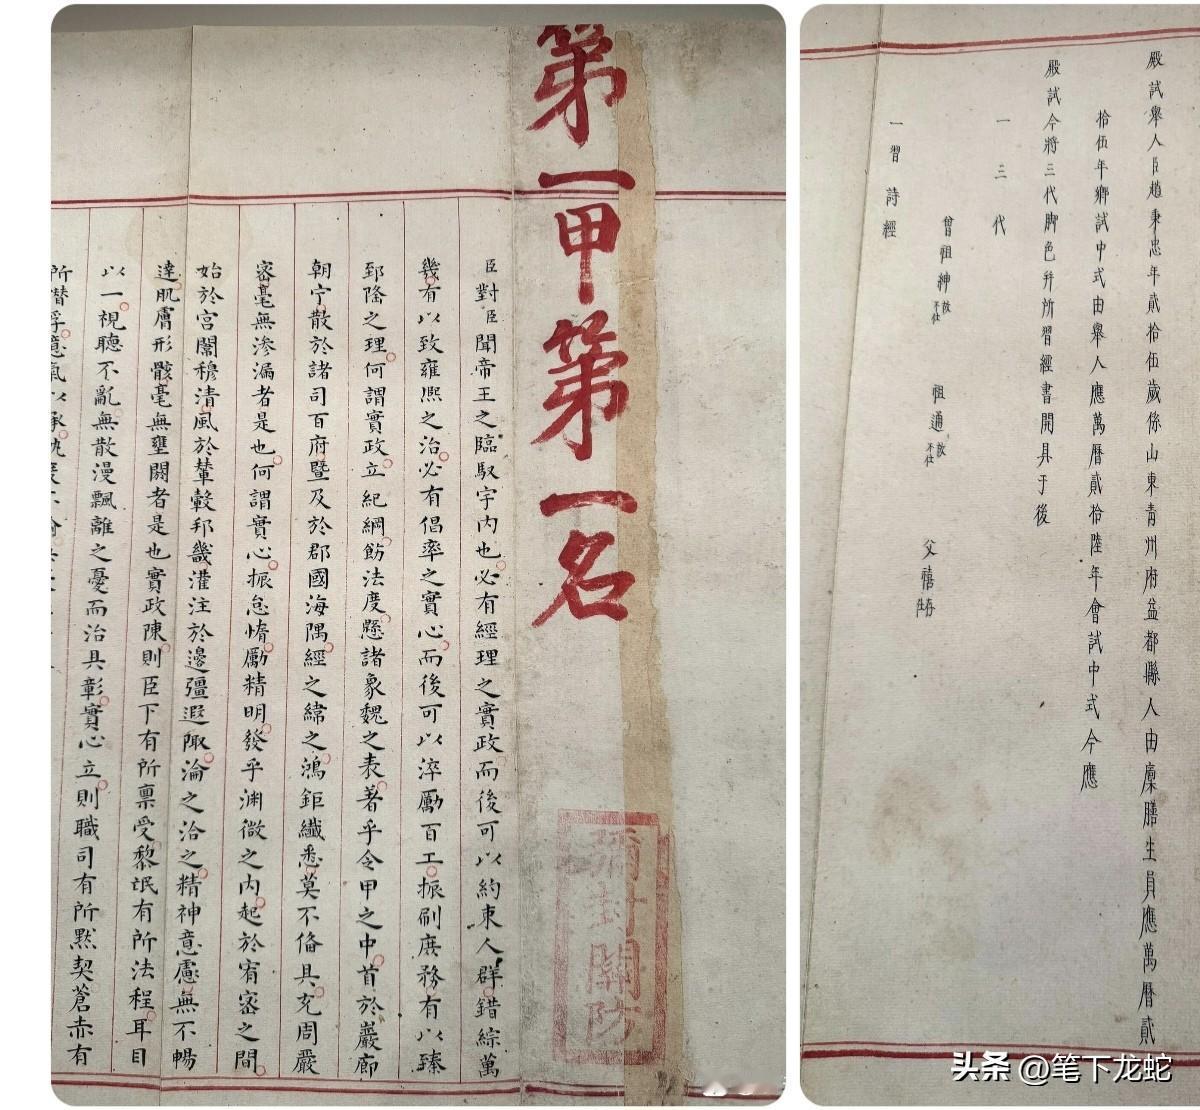 殿試舉人臣趙秉忠年貳拾伍歲係山東青州府益都縣人由廩膳生員應萬曆貳
拾伍年鄉試中式由舉人應萬曆貳拾陸年會試中式今應
殿試今將三代脚色并所習經書開具于後
一三代
曾祖紳故不仕 祖通故不仕 父禧
一習詩經
第一甲第一名
彌封關防
臣對臣聞帝王之臨馭宇內也必有經理之實政而後可以約束人群錯綜萬
幾有以致雍熙之治必有倡率之實心而後可以淬勵百工振刷庶務有以臻
郅隆之理何謂實政立紀綱飭法度懸諸象魏之表著乎令甲之中首於巖廊
朝宁散於諸司百府暨及於郡國海隅經之緯之鴻鉅纖悉莫不俻具充周嚴
密毫無滲漏者是也何謂實心振怠惰勵精明發乎渊微之內起於宥密之間
始於宮闈穆清風於輦轂邦畿灌注於邊疆遐陬淪之洽之精神意慮無不暢
達肌膚形骸毫無壅閼者是也實政陳則臣下有所稟受黎氓有所法程耳目
以一視聽不亂無散漫飄離之憂而治具彰實心立則職司有所默契蒼赤有
所潛孚意氣以承
头条 @笔下龙蛇